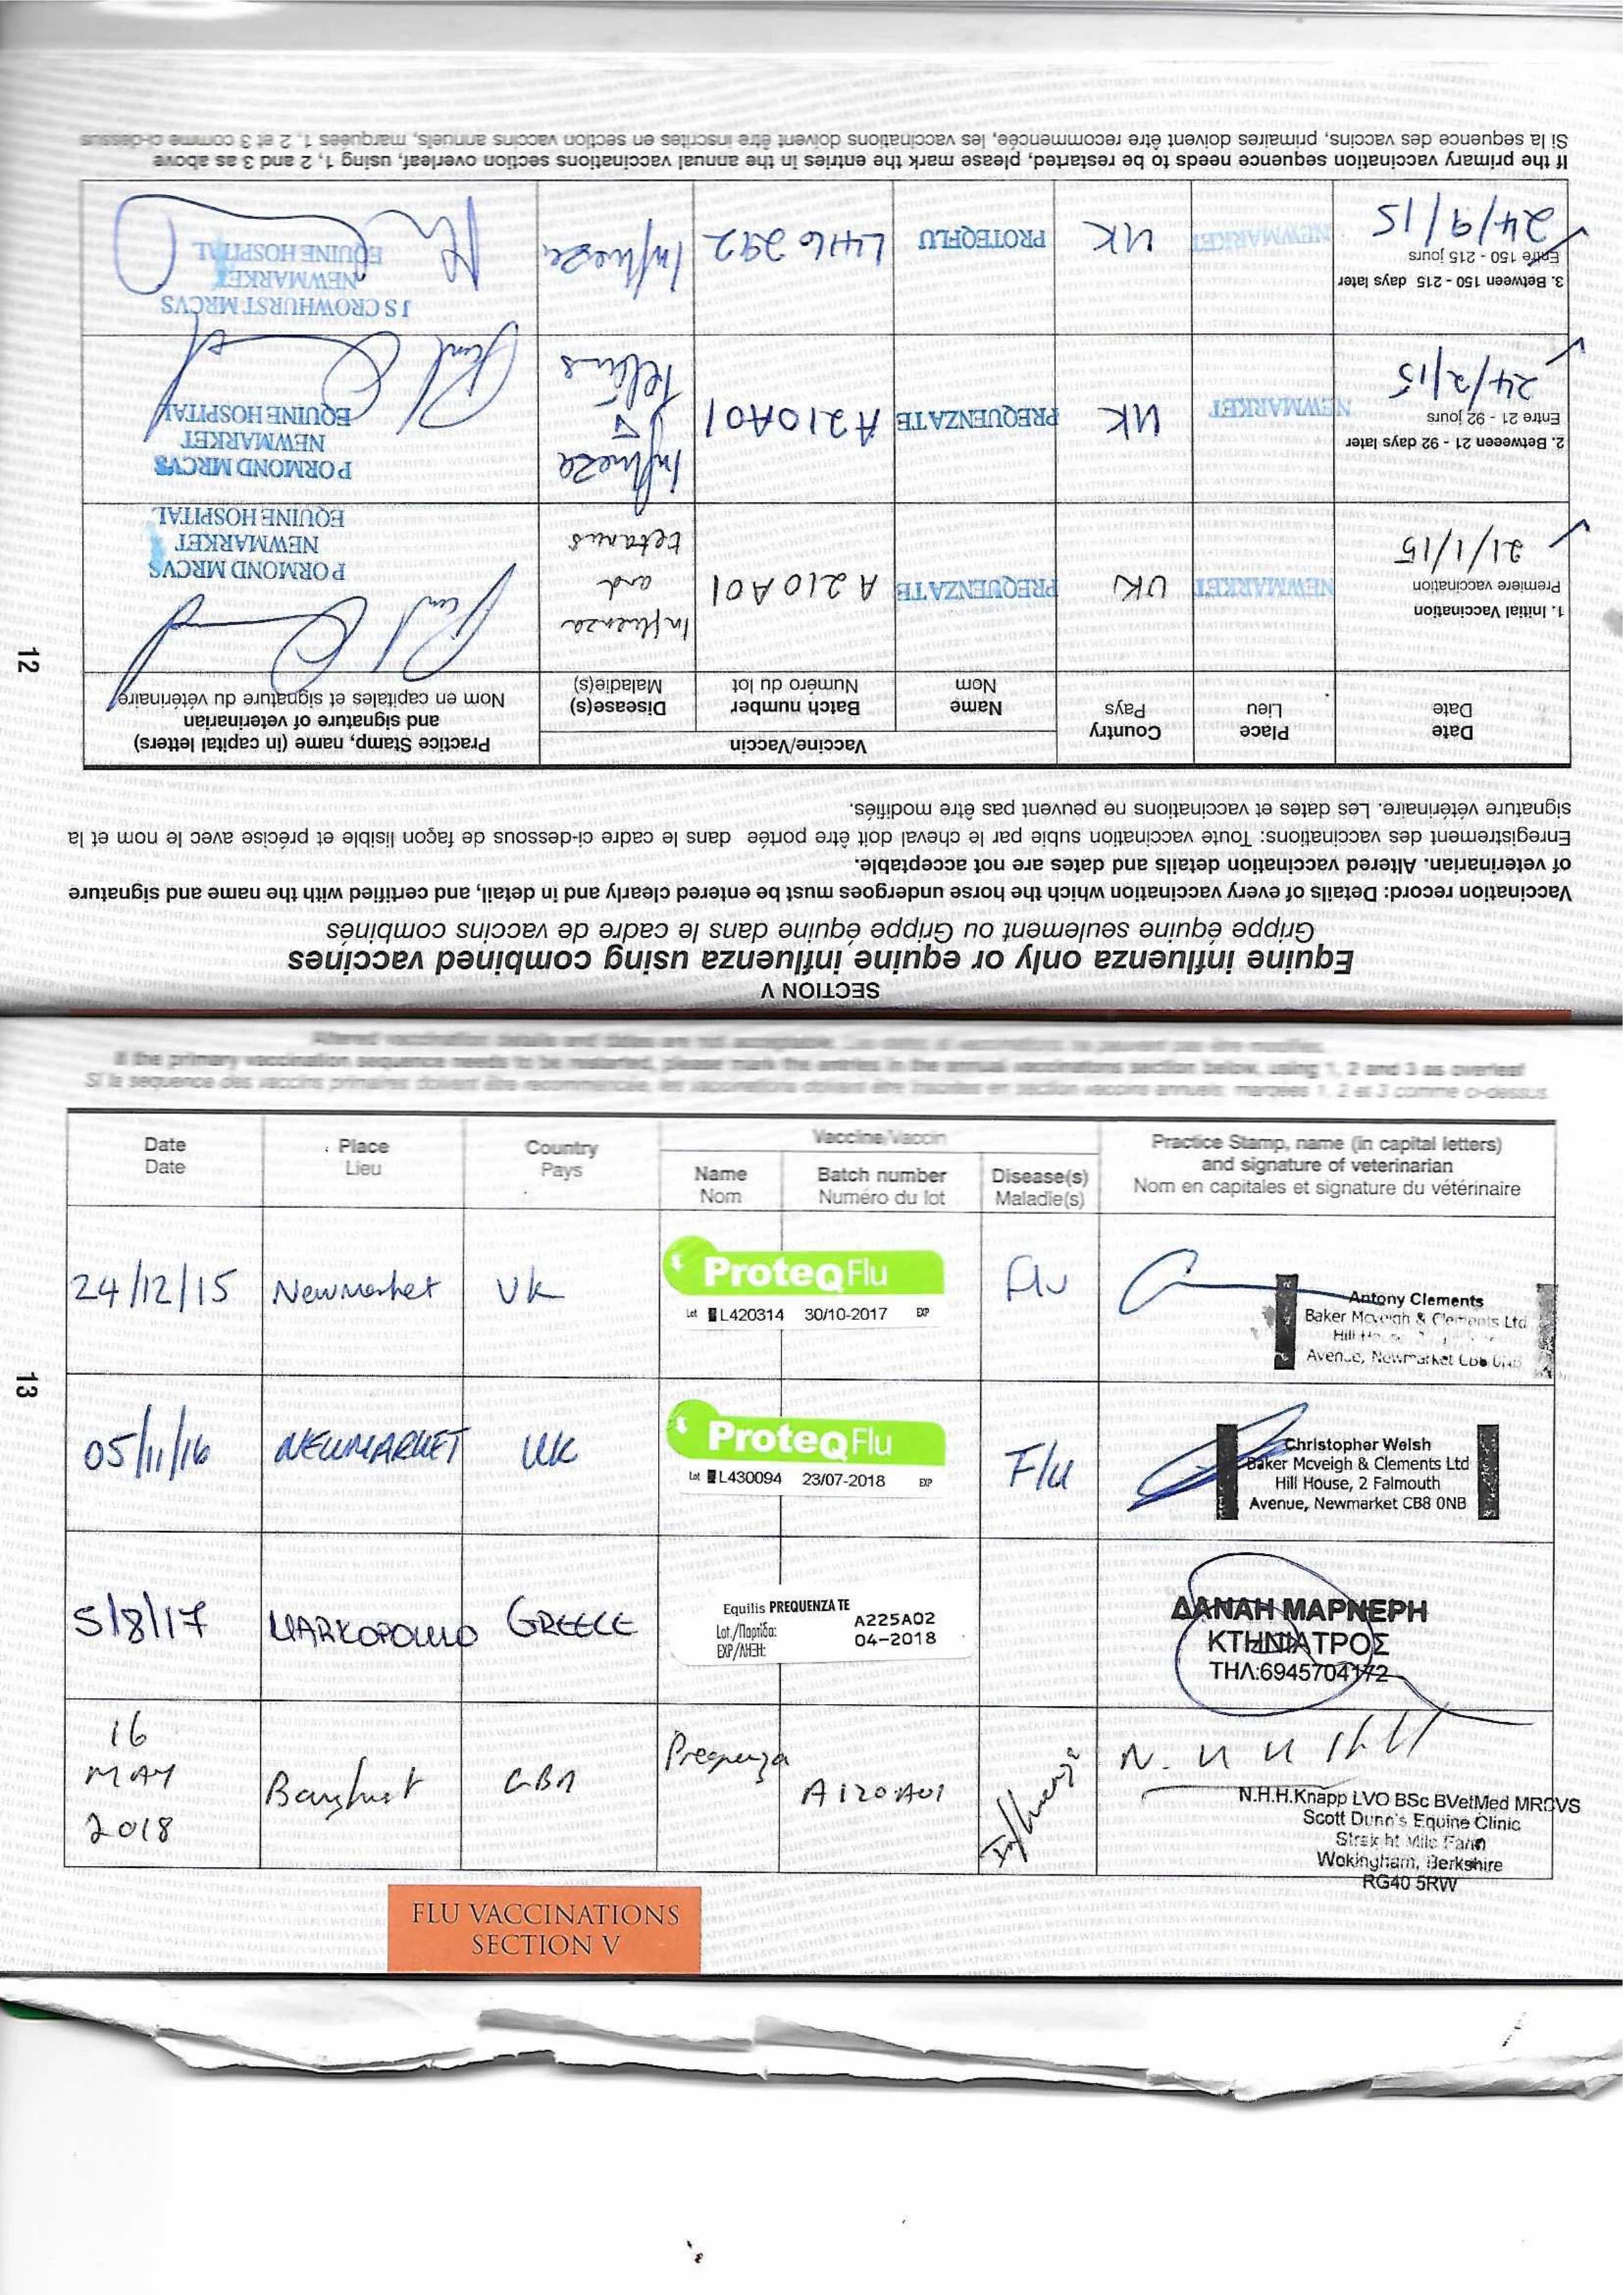 SECTION V
Equine influenza only or equine influenza using combined vaccines
Grippe équine seulement ou Grippe équine dans le cadre de vaccins combinés
Vaccination record: Details of every vaccination which the horse undergoes must be entered clearly and in detail, and certified with the name and signature
of veterinarian. Altered vaccination details and dates are not acceptable.
Enregistrement des vaccinations: Toute vaccination subie par le cheval doit être portée dans le cadre ci-dessous de façon lisible et précise avec le nom et la
signature vétérinaire. Les dates et vaccinations ne peuvent pas être modifiés.
Date
Date
Place
Lieu
Country
Pays
Vaccine/Vaccin
Name
Nom
Batch number
Numéro du lot
Disease(s)
Maladie(s)
Practice Stamp, name (in capital letters)
and signature of veterinarian
Nom en capitales et signature du vétérinaire
1. Initial Vaccination
Premiere vaccination
21/1/15
NEWMARKET
UK
PREQUENZA TE
A210A01
Influenza
and
tetanus
P ORMOND MRCVS
NEWMARKET
EQUINE HOSPITAL
2. Betweeen 21 - 92 days later
Entre 21 - 92 jours
24/2/15
NEWMARKET
UK
PREQUENZA TE
A210A01
Influenza
Tetanus
P ORMOND MRCVS
NEWMARKET
EQUINE HOSPITAL
3. Between 150 - 215 days later
Entre 150 - 215 jours
24/9/15
NEWMARKET
UK
PROTEQFLU
L446292
Influenza
J S CROWHURST MRCVS
NEWMARKET
EQUINE HOSPITAL
If the primary vaccination sequence needs to be restarted, please mark the entries in the annual vaccinations section overleaf, using 1, 2 and 3 as above
Si la sequence des vaccins, primaires doivent être recommencée, les vaccinations doivent être inscrites en section vaccins annuels, marquées 1, 2 et 3 comme ci-dessus
12
Altered vaccination details and dates are not acceptable. Les dates et vaccinations ne peuvent pas être modifiés.
If the primary vaccination sequence needs to be restarted, please mark the entries in the annual vaccinations section below, using 1, 2 and 3 as overleaf
Si la sequence des vaccins primaires doivent être recommencée, les vaccinations doivent être inscrites en section vaccins annuels, marquées 1, 2 et 3 comme ci-dessus
Date
Date
Place
Lieu
Country
Pays
Vaccine/Vaccin
Name
Nom
Batch number
Numéro du lot
Disease(s)
Maladie(s)
Practice Stamp, name (in capital letters)
and signature of veterinarian
Nom en capitales et signature du vétérinaire
24/12/15
Newmarket
UK
ProteqFlu
Lot L420314 30/10-2017 EXP
Flu
Antony Clements
Baker Mcveigh & Clements Ltd
Hill House
Avenue, Newmarket CB8 0NB
05/11/16
NEWMARKET
UK
ProteqFlu
Lot L430094 23/07-2018 EXP
Flu
Christopher Welsh
Baker Mcveigh & Clements Ltd
Hill House, 2 Falmouth
Avenue, Newmarket CB8 0NB
5/8/17
MARKOPOULO
GREECE
Equilis PREQUENZA TE
Lot./Παρτίδα: A225A02
EXP/ΛΗΞΗ: 04-2018
ΔΑΝΑΗ ΜΑΡΝΕΡΗ
ΚΤΗΝΙΑΤΡΟΣ
ΤΗΛ:6945704172
16
MAY
2018
GBR
Prequenza
A120A01
Influenza
N.H.H.Knapp LVO BSc BVetMed MRCVS
Scott Dunn's Equine Clinic
Straight Mile Farm
Wokingham, Berkshire
RG40 5RW
13
FLU VACCINATIONS
SECTION V